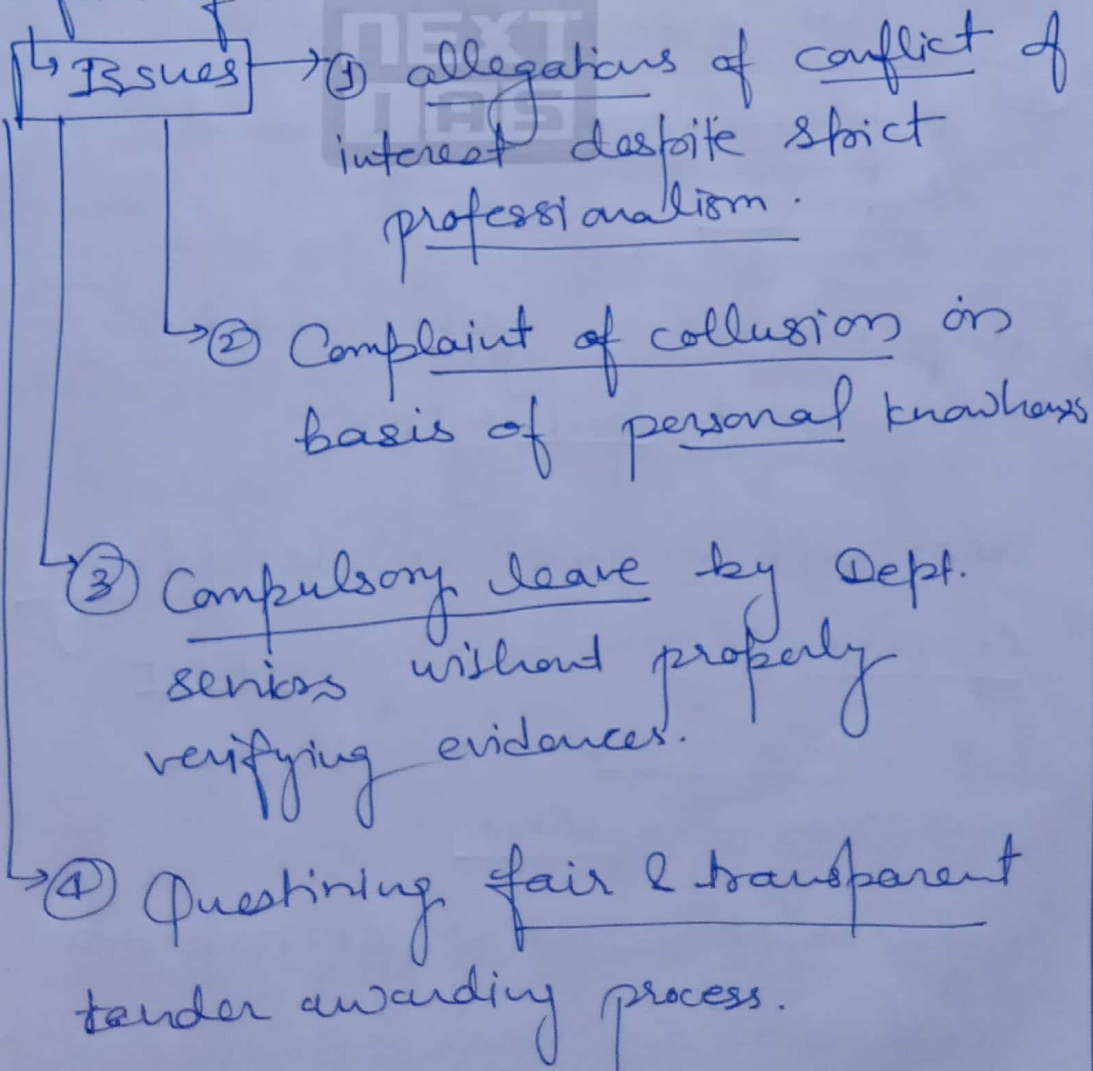 NEXT
IAS
Issues → ① allegations of conflict of
interest despite strict
professionalism.
② Complaint of collusion on
basis of personal knowhows
③ Compulsory leave by Dept.
seniors without properly
verifying evidences.
④ Questining fair & transparent
tender awarding process.